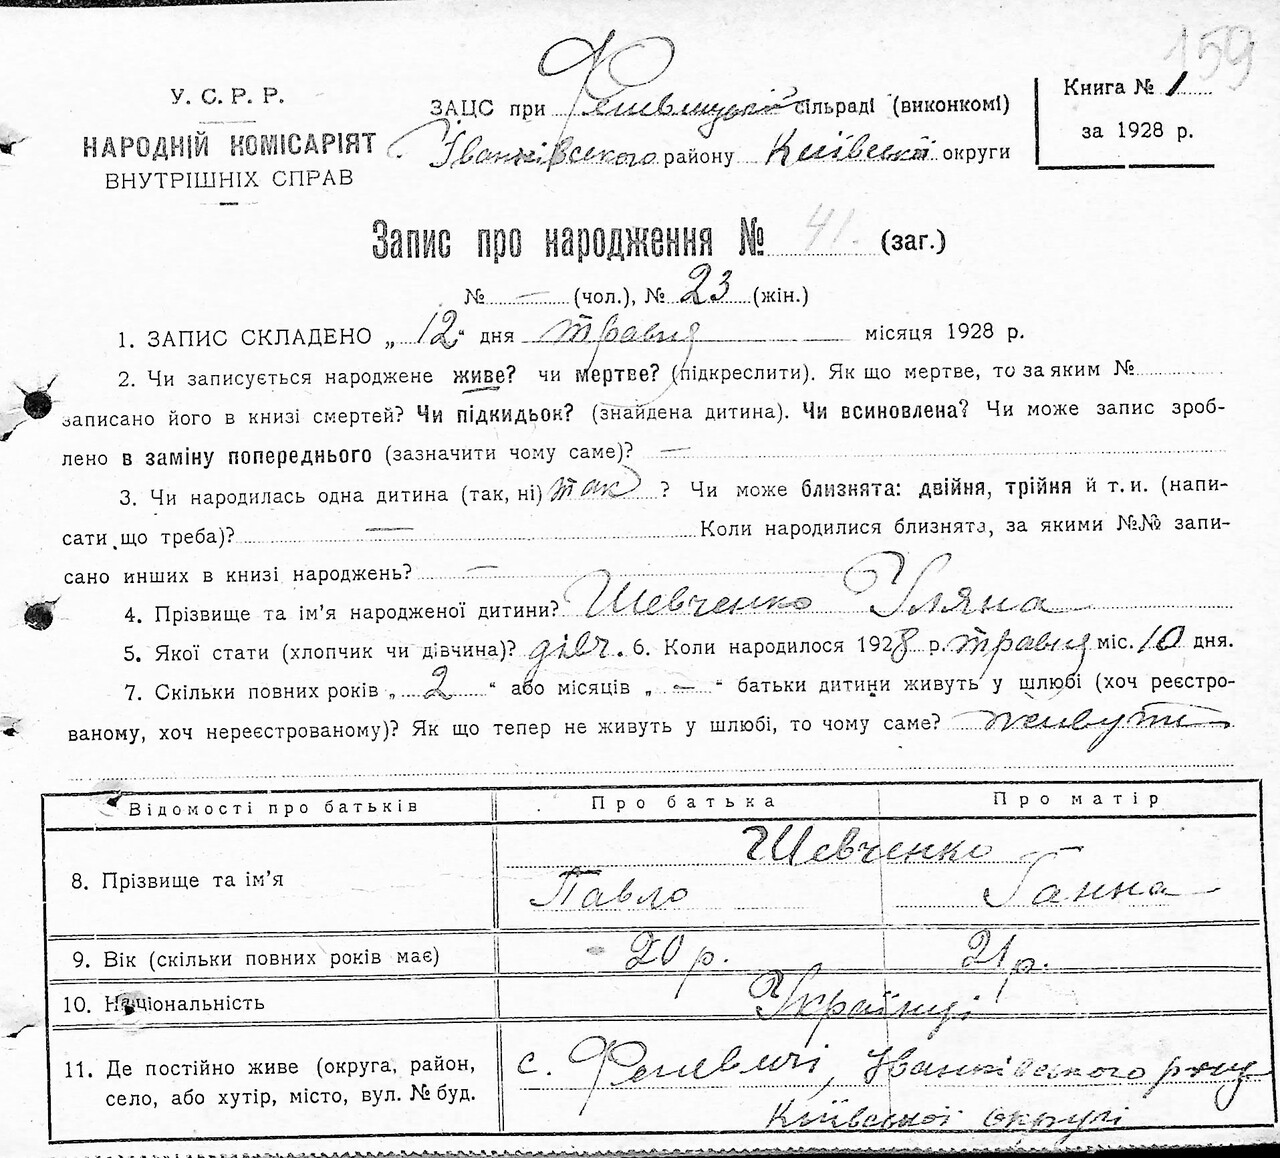 159
У. С. Р. Р.
НАРОДНІЙ КОМІСАРІЯТ
ВНУТРІШНІХ СПРАВ
ЗАЦС при Феневицькій сільраді (виконкомі)
Іванківського району Київської округи
Книга № 1
за 1928 р.
Запис про народження № 41. (заг.)
№ — (чол.), № 23 (жін.)
1. ЗАПИС СКЛАДЕНО „ 12 “ дня травня місяця 1928 р.
2. Чи записується народжене живе? чи мертве? (підкреслити). Як що мертве, то за яким №
записано його в книзі смертей? Чи підкидьок? (знайдена дитина). Чи всиновлена? Чи може запис зроб-
лено в заміну попереднього (зазначити чому саме)? —
3. Чи народилась одна дитина (так, ні) так ? Чи може близнята: двійня, трійня й т. и. (напи-
сати що треба)? — Коли народилися близнята, за якими №№ запи-
сано инших в книзі народжень? —
4. Прізвище та ім’я народженої дитини? Шевченко Уляна
5. Якої стати (хлопчик чи дівчина)? дівч. 6. Коли народилося 1928 р. травня міс. 10 дня.
7. Скільки повних років „ 2 “ або місяців „ — “ батьки дитини живуть у шлюбі (хоч реєстро-
ваному, хоч нереєстрованому)? Як що тепер не живуть у шлюбі, то чому саме? живуть
Відомості про батьків Про батька Про матір
Шевченко
8. Прізвище та ім’я Павло Ганна
9. Вік (скільки повних років має) 20 р. 21 р.
10. Національність Українці
11. Де постійно живе (округа, район, с. Феневичі, Іванківського р-ну
село, або хутір, місто, вул. № буд. Київської округи